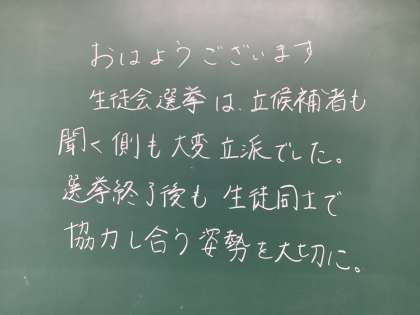 おはようございます
生徒会選挙は、立候補者も
聞く側も大変立派でした。
選挙終了後も生徒同士で
協力し合う姿勢を大切に。